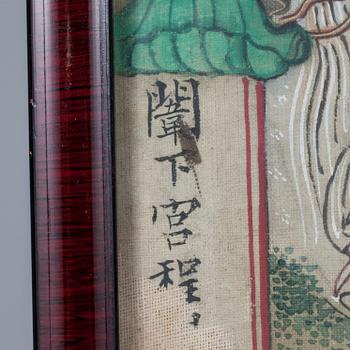 闈下宮程。